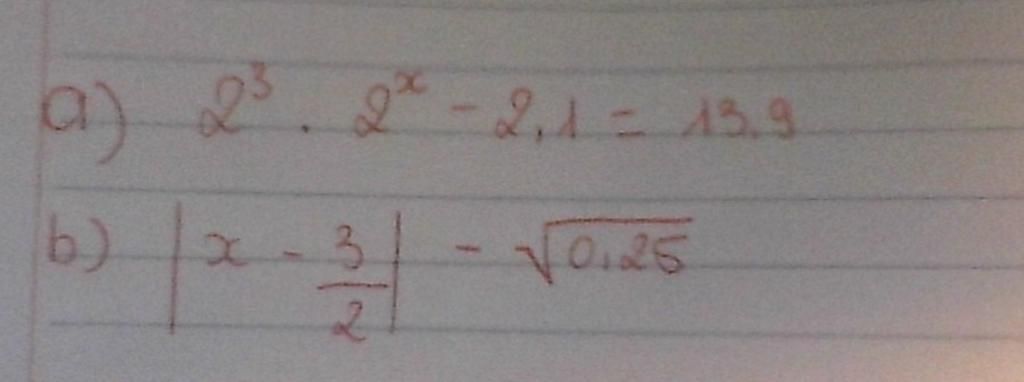 a) 2³ . 2ˣ - 2,1 = 13.9
b) |x - 3/2| - √0.25